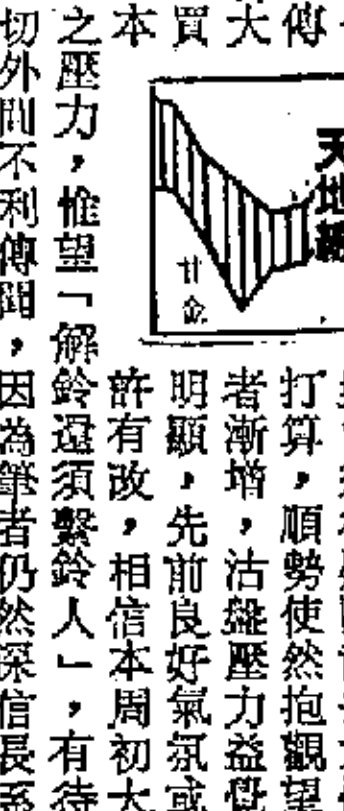 傳
大
買
本
天地
甘金
打算，順勢使然抱觀望
者漸增，沽盤壓力益覺
明顯，先前良好氣氛或
許有改，相信本周初大
之壓力，惟望「解鈴還須繫鈴人」，有待
切外間不利傳聞，因為筆者仍然深信長